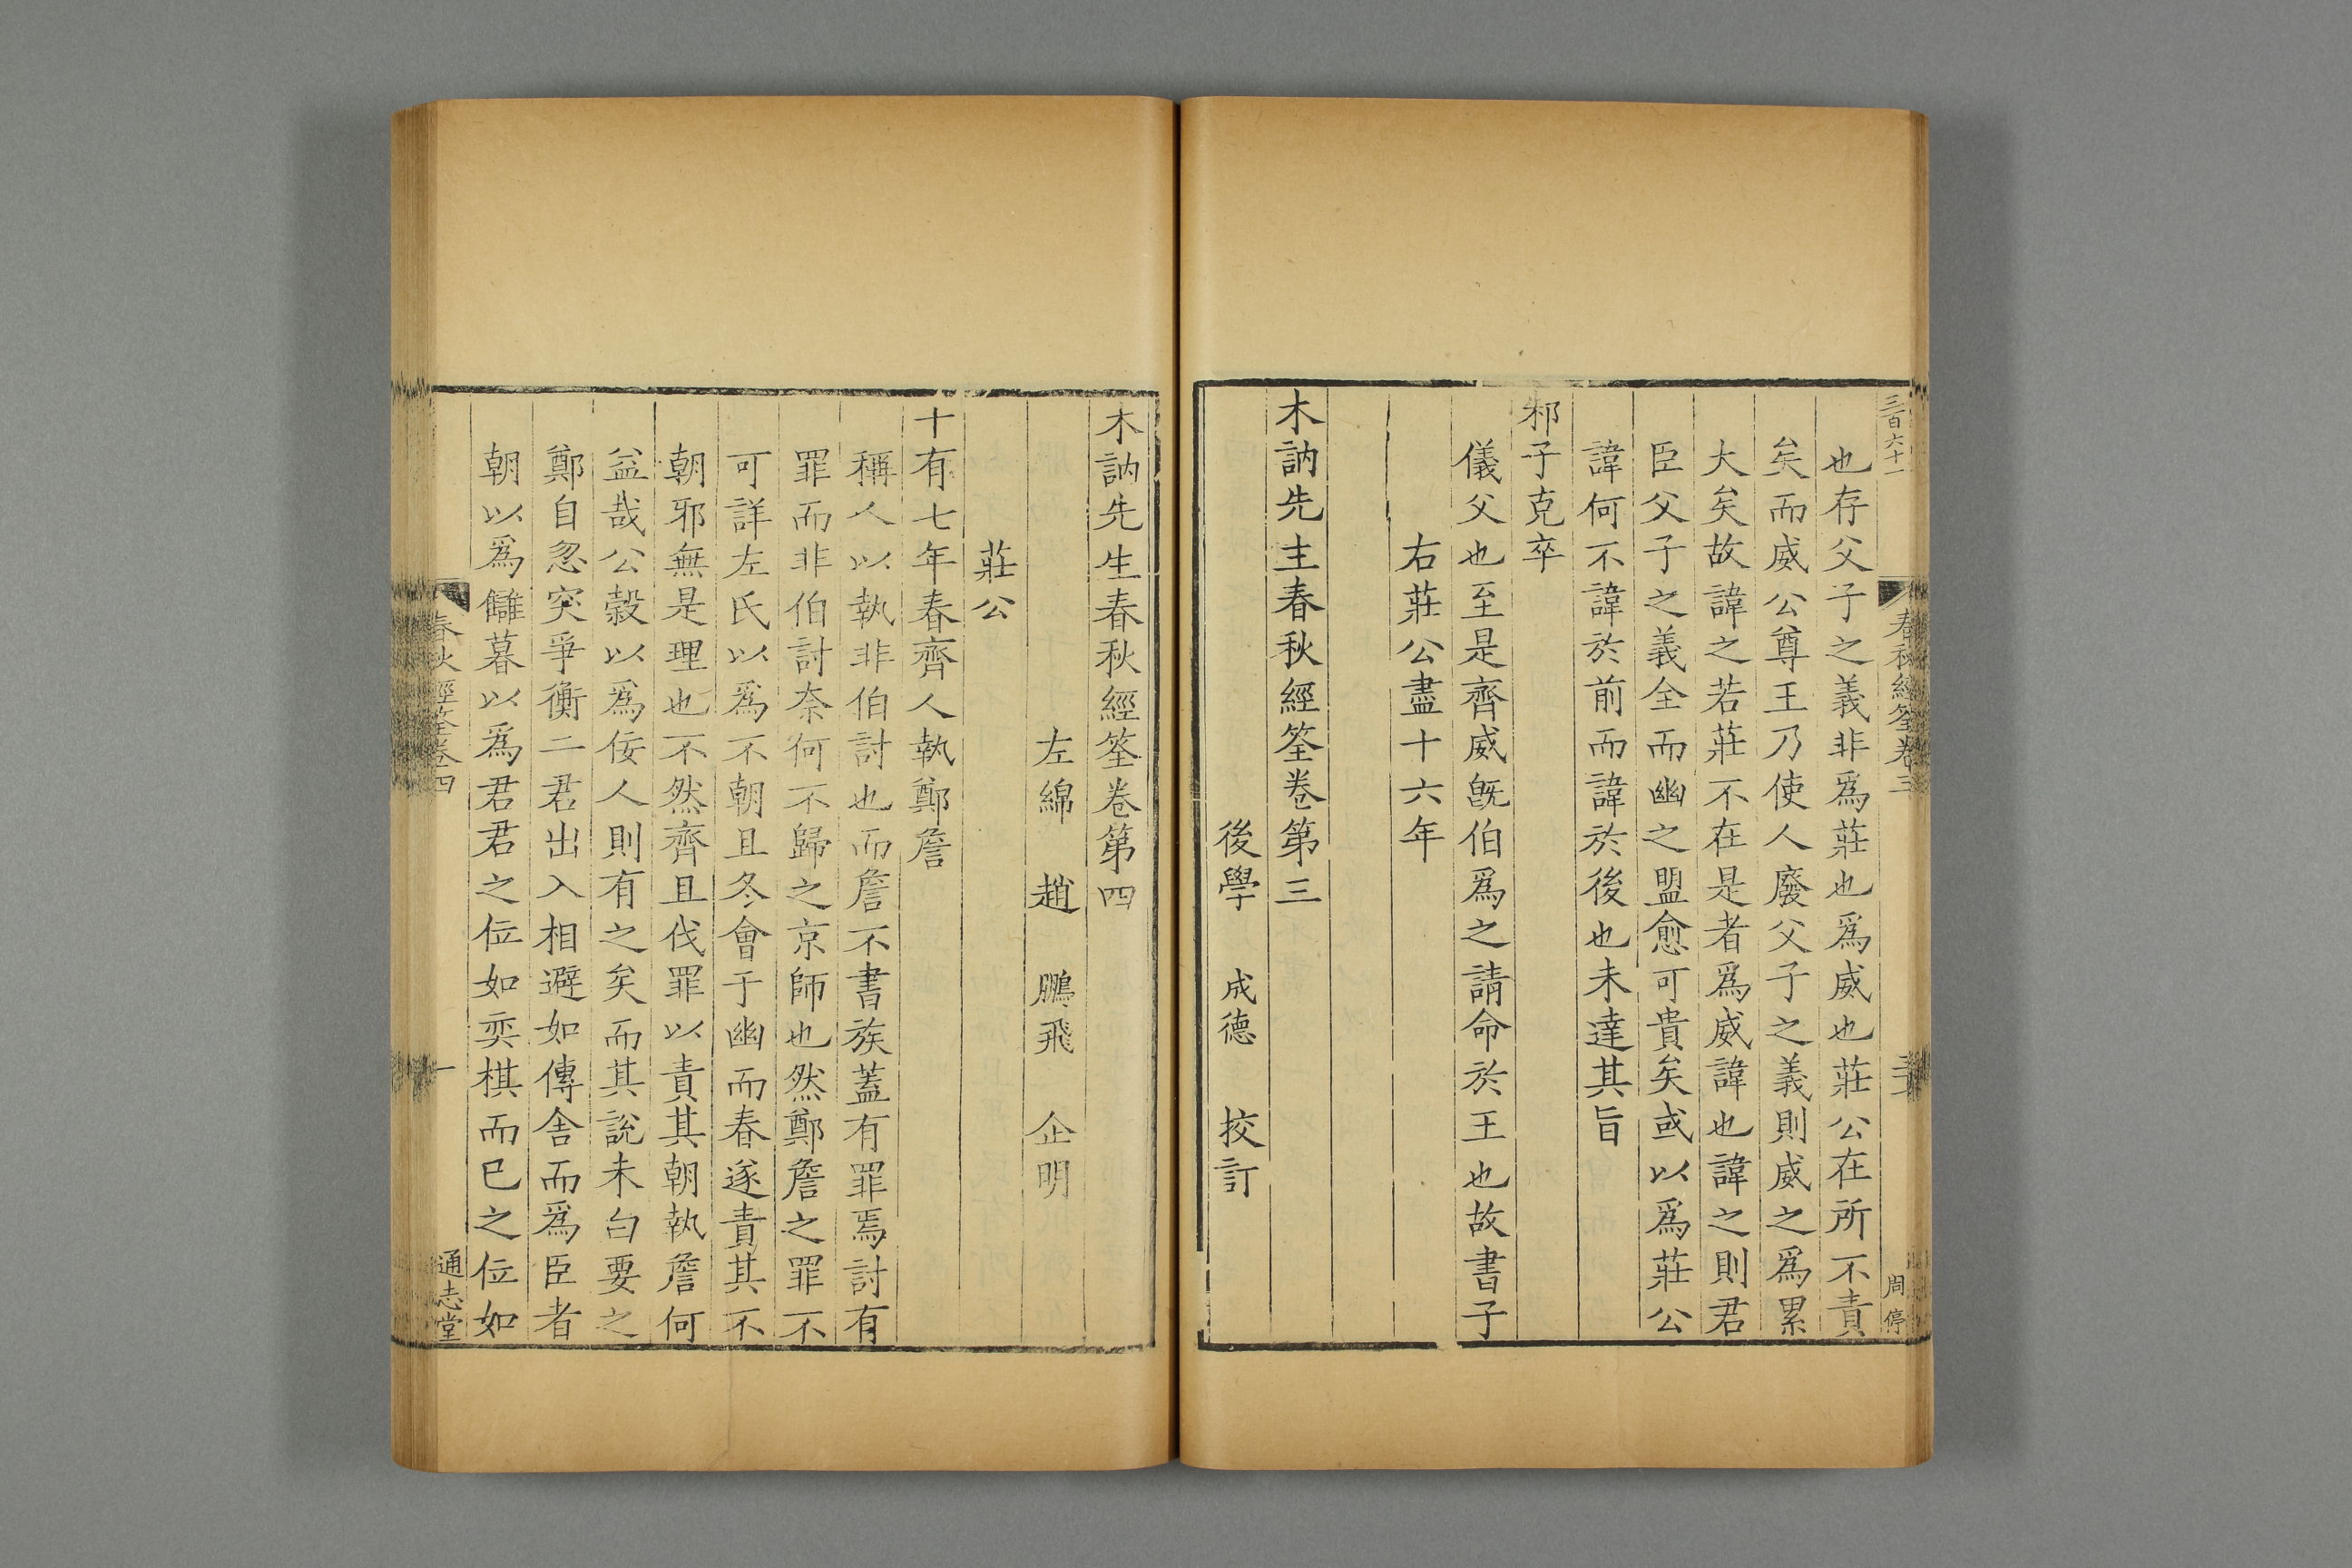 三百六十一
春秋經筌卷三
周停
也存父子之義非爲莊也爲威也莊公在所不責
矣而威公尊王乃使人廢父子之義則威之爲累
大矣故諱之若莊不在是者爲威諱也諱之則君
臣父子之義全而幽之盟愈可貴矣或以爲莊公
諱何不諱於前而諱於後也未達其旨
邾子克卒
儀父也至是齊威旣伯爲之請命於王也故書子
右莊公盡十六年
木訥先生春秋經筌卷第三
後學 成德 挍訂
木訥先生春秋經筌卷第四
左綿 趙 鵬飛 企明
莊公
十有七年春齊人執鄭詹
稱人以執非伯討也而詹不書族蓋有罪焉討有
罪而非伯討奈何不歸之京師也然鄭詹之罪不
可詳左氏以爲不朝且冬會于幽而春遂責其不
朝邪無是理也不然齊且伐罪以責其朝執詹何
益哉公穀以爲佞人則有之矣而其說未白要之
鄭自忽突爭衡二君出入相避如傳舍而爲臣者
朝以爲讎暮以爲君君之位如奕棋而已之位如
春秋經筌卷四
一
通志堂